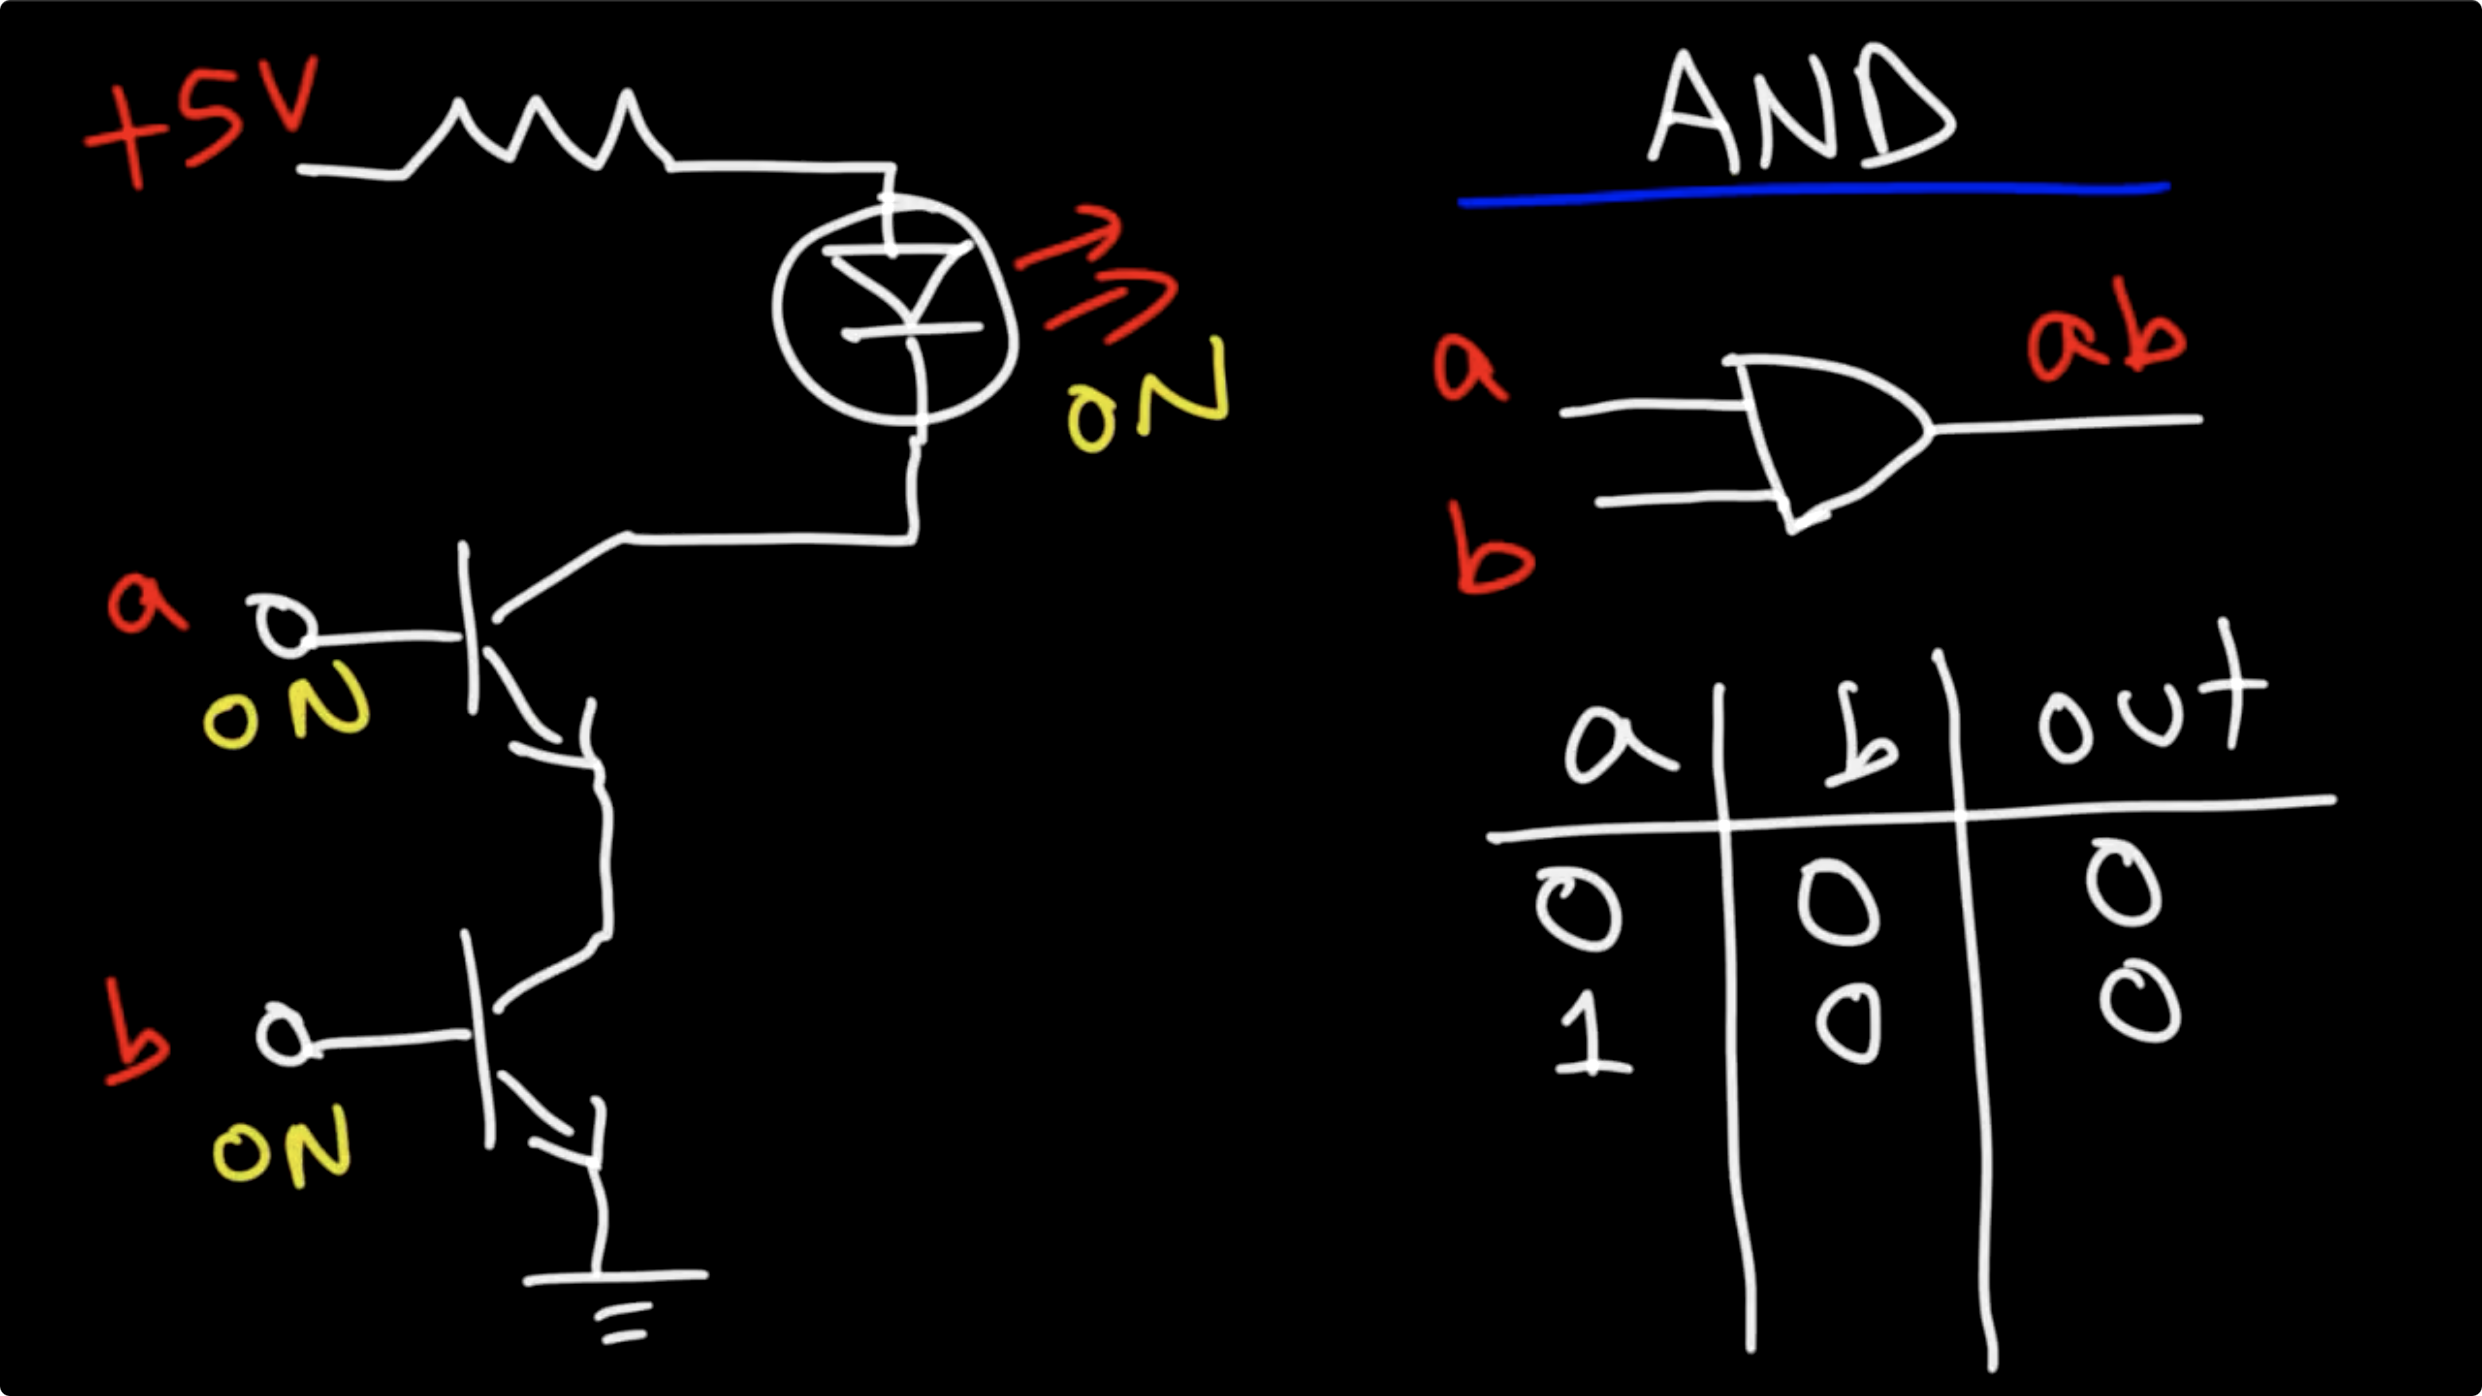 +5V
ON
a
ON
b
ON
AND
a
ab
b
a b out
0 0 0
1 0 0